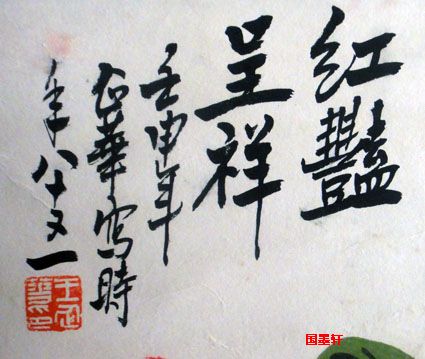 红豔
呈祥
壬申年
企華寫時
年八十又一
王企
華印
国墨轩